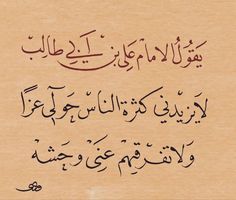 يَقُولُ الامامْ عَلي بنْ أَبي طالِبْ
لَا يَزيدُني كثرَة الناسْ حَولي عزًا
وَلَا تَفرّقهِمْ عَنّي وَحشَه